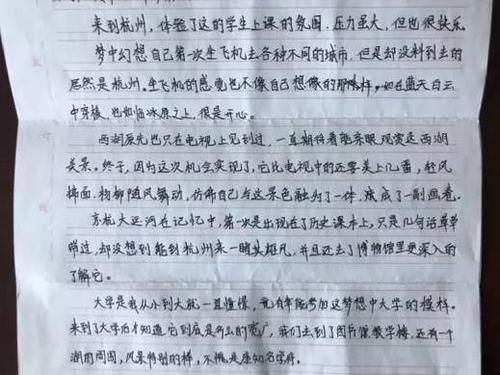 来到杭州，体验了这的学生上课的氛围，压力虽大，但也很快乐。
梦中幻想自己第一次坐飞机去各种不同的城市，但是却没料到去的
居然是杭州。坐飞机的感觉也不像自己想像的那样，如在蓝天白云
中穿梭，也如临冰层之上，很是开心。
西湖原先也只在电视上见到过，一直期待着能亲眼观赏这西湖
美景。终于，因为这次机会实现了，它比电视中的还要美上几番，轻风
拂面，杨柳随风舞动，仿佛自己与这景色融为了一体，成了一副画卷。
京杭大运河在记忆中，第一次是出现在了历史课本上，只是几句话草草
带过，却没想到能到杭州来一睹其雄风，并且还去了博物馆里更深入的
了解它。
大学是我从小到大就一直憧憬，能参加这梦想中大学的模样。
来到了大学后才知道它到底是有多的宽广，我们去到了图片像教学楼，还有一个
湖的周围，风景特别的棒，不愧是座知名学府。